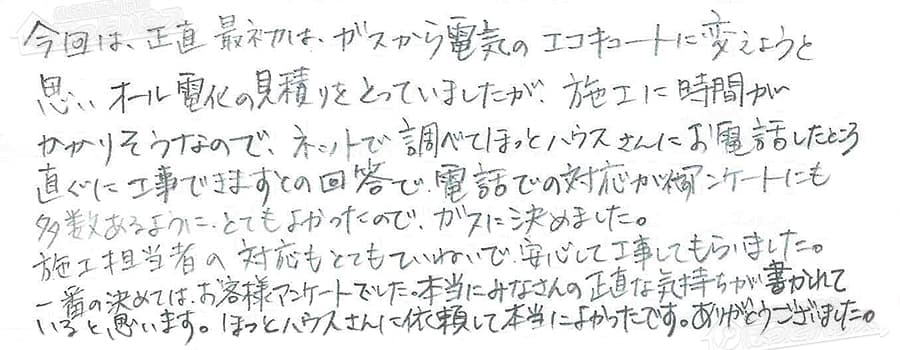 今回は、正直最初は、ガスから電気のエコキュートに変えようと
思いオール電化の見積りをとっていましたが、施工に時間が
かかりそうなので、ネットで調べてほっとハウスさんにお電話したところ
直ぐに工事できますとの回答で、電話での対応が御アンケートにも
多数あるように、とてもよかったので、ガスに決めました。
施工担当者の対応もとてもていねいで、安心して工事してもらいました。
一番の決めては、お客様アンケートでした。本当にみなさんの正直な気持ちが書かれて
いると思います。ほっとハウスさんに依頼して本当によかったです。ありがとうございました。